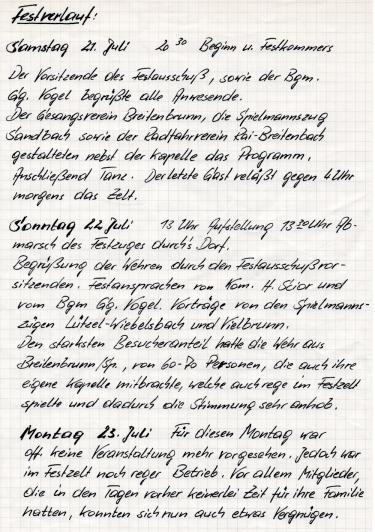 Festverlauf:
Samstag 21. Juli 20 30 Beginn u. Festkommers
Der Vorsitzende des Festausschuß, sowie der Bgm.
Gg. Vogel begrüßte alle Anwesende.
Der Gesangsverein Breitenbrunn, die Spielmannszug
Sandbach sowie der Radfahrverein Rai-Breitenbach
gestalteten nebst der Kapelle das Programm.
Anschließend Tanz. Der letzte Gast verläßt gegen 4 Uhr
morgens das Zelt.
Sonntag 22 Juli 13 Uhr Aufstellung 13 30 Uhr Ab-
marsch des Festzuges durch's Dorf.
Begrüßung der Wehren durch den Festausschußvor-
sitzenden. Festansprachen von Kom. H. Stior und
vom Bgm Gg. Vogel. Vorträge von den Spielmanns-
zügen Lützel-Wiebelsbach und Vielbrunn.
Den starksten Besucheranteil hatte die Wehr aus
Breitenbrunn/Sp., von 60-70 Personen, die auch ihre
eigene Kapelle mitbrachte, welche auch rege im Festzelt
spielte und dadurch die Stimmung sehr anhob.
Montag 23. Juli Für diesen Montag war
off. keine Veranstaltung mehr vorgesehen. Jedoch war
im Festzelt noch reger Betrieb. Vor allem Mitglieder,
die in den Tagen vorher keinerlei Zeit für ihre Familie
hatten, konnten sich nun auch etwas Vergnügen.